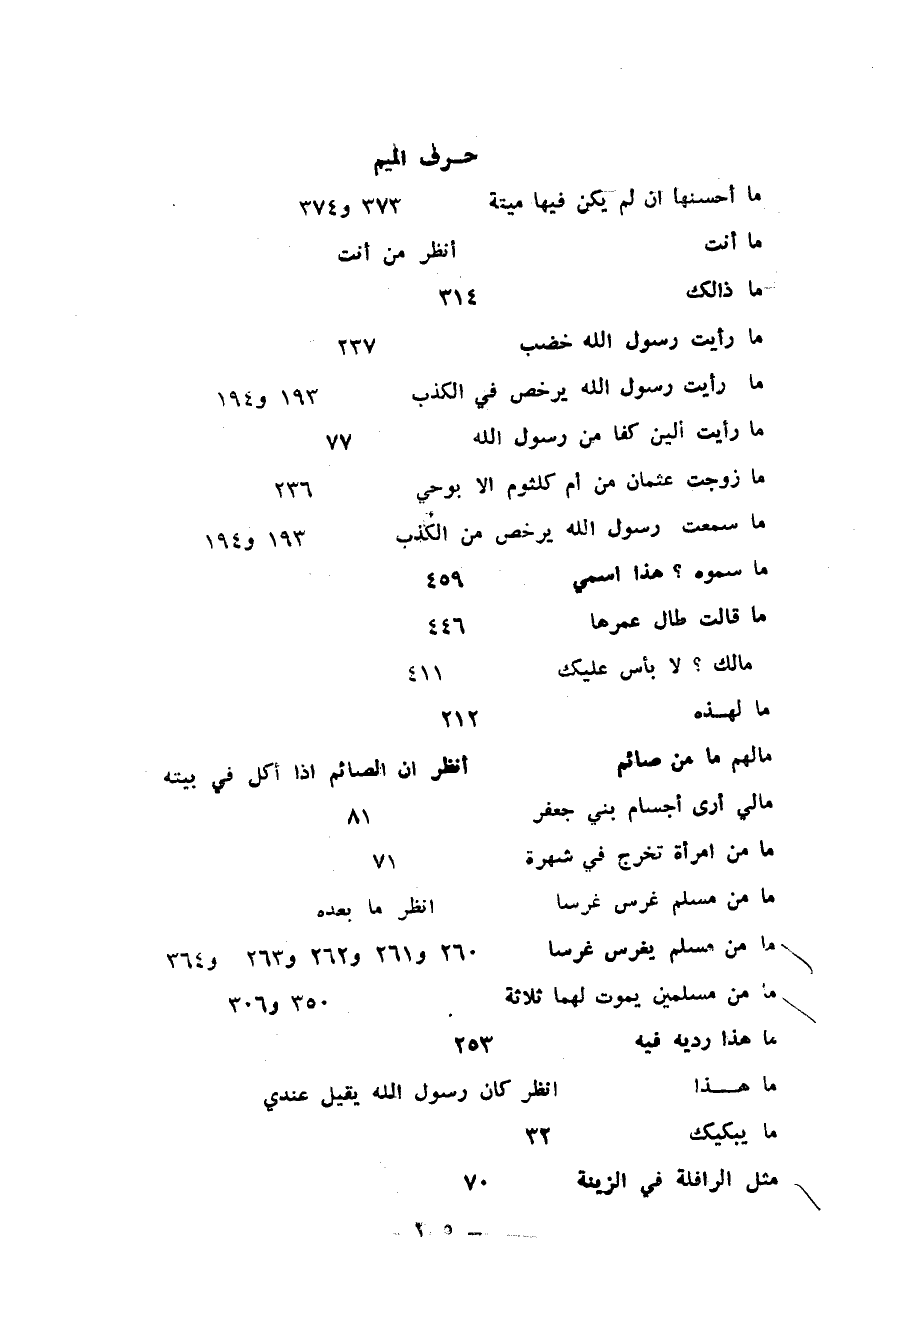 حـرف الميم
ما أحسنها ان لم يكن فيها ميتة ٣٧٣ و٣٧٤
ما أنت أنظر من أنت
ما ذالك ٣١٤
ما رأيت رسول الله خضب ٢٣٧
ما رأيت رسول الله يرخص في الكذب ١٩٣ و١٩٤
ما رأيت ألين كفا من رسول الله ٧٧
ما زوجت عثمان من أم كلثوم الا بوحي ٢٣٦
ما سمعت رسول الله يرخص من الكُذب ١٩٣ و١٩٤
ما سموه ؟ هذا اسمي ٤٥٩
ما قالت طال عمرها ٤٤٦
مالك ؟ لا بأس عليك ٤١١
ما لهـذه ٢١٢
مالهم ما من صائم أنظر ان الصائم اذا أكل في بيته
مالي أرى أجسام بني جعفر ٨١
ما من امرأة تخرج في شهرة ٧١
ما من مسلم غرس غرسا انظر ما بعده
ما من مسلم يغرس غرسا ٢٦٠ و٢٦١ و٢٦٢ و٢٦٣ و٣٦٤
ما من مسلمين يموت لهما ثلاثة ٣٥٠ و٣٠٦
ما هذا رديه فيه ٢٥٣
ما هـــذا انظر كان رسول الله يقيل عندي
ما يبكيك ٣٢
مثل الرافلة في الزينة ٧٠